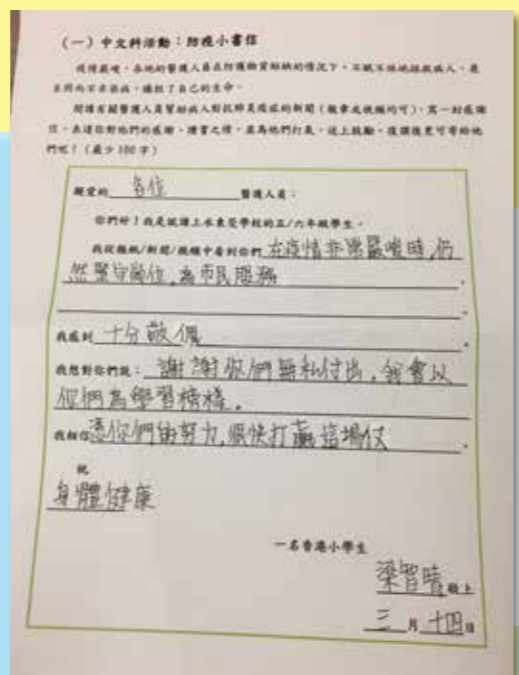 (一)中文科活動:防疫小書信
疫情嚴峻,各地的醫護人員在防護物資短缺的情況下,不眠不休地拯救病人,甚
至因而不幸染病,犧牲了自己的生命。
閱讀有關醫護人員幫助病人對抗肺炎疫症的新聞(報章或視頻均可),寫一封感謝
信,表達你對他們的感謝、讚賞之情,並為他們打氣,送上鼓勵。復課後更可寄給他
們呢!(最少100字)
親愛的 各位 醫護人員:
你們好!我是就讀上水東莞學校的五/六年級學生。
我從報紙/新聞/視頻中看到你們 在疫情非常嚴峻時,仍
然堅守崗位,為市民服務。
我感到 十分敬佩。
我想對你們說:謝謝你們無私付出,我會以
你們為學習榜樣。
我相信憑你們的努力,很快打贏這場仗。
祝
身體健康
一名香港小學生
梁智晴 敬上
三月十四日